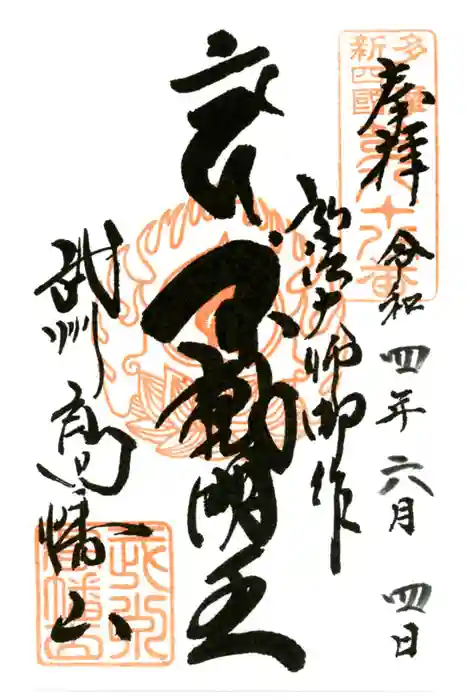 奉拝 令和四年六月四日
多摩
新四國
弘法大師御作
不動明王
武州 高幡山